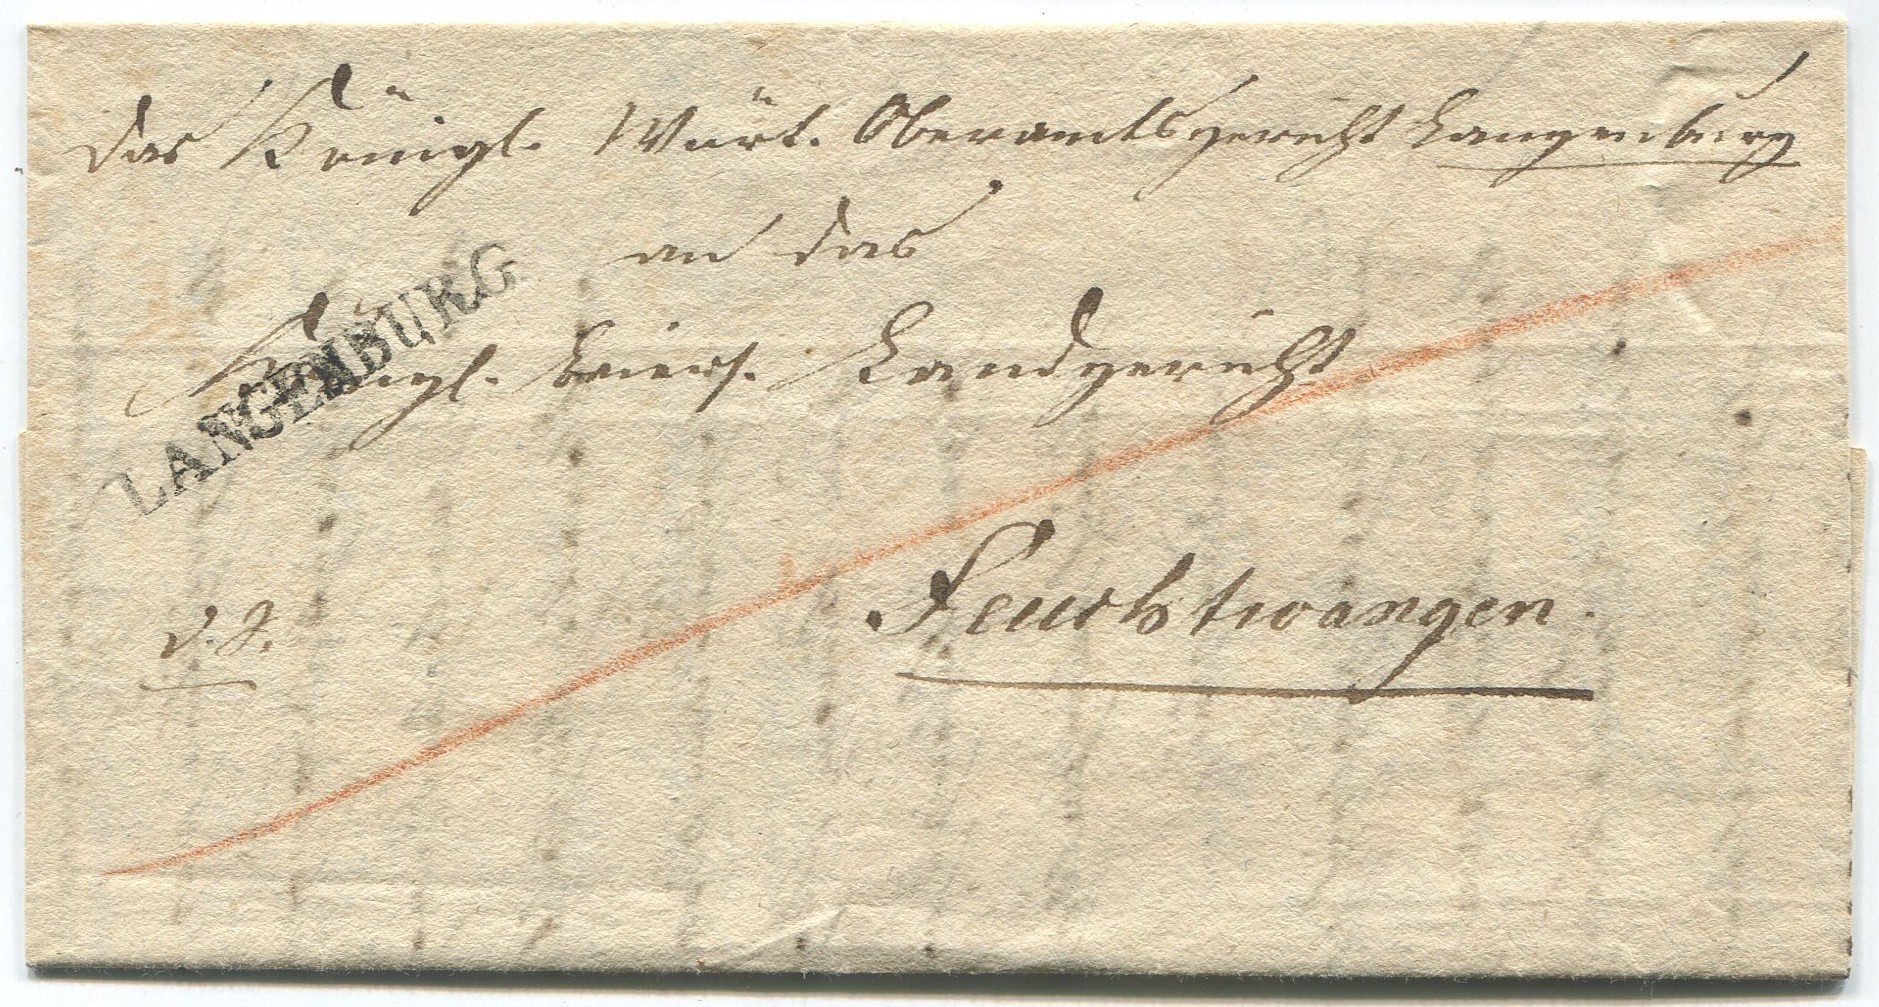 Das Königl. Würt. Oberamtsgericht Langenburg
an das
Königl. baiers. Landgericht
LANGENBURG
Feuchtwangen.
d. S.